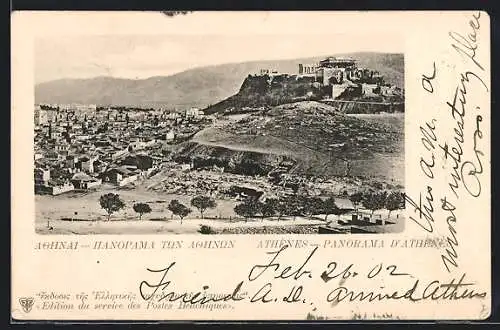 ΑΘΗΝΑΙ — ΠΑΝΟΡΑΜΑ ΤΩΝ ΑΘΗΝΩΝ ATHÈNES — PANORAMA D'ATHÈNES
"Έκδοσις τῆς Ἑλληνικῆς
«Edition du service des Postes Helléniques».
Feb. 26. 02
Friend A.D. arrived Athens
this a. m. a
most interesting place
Ross.